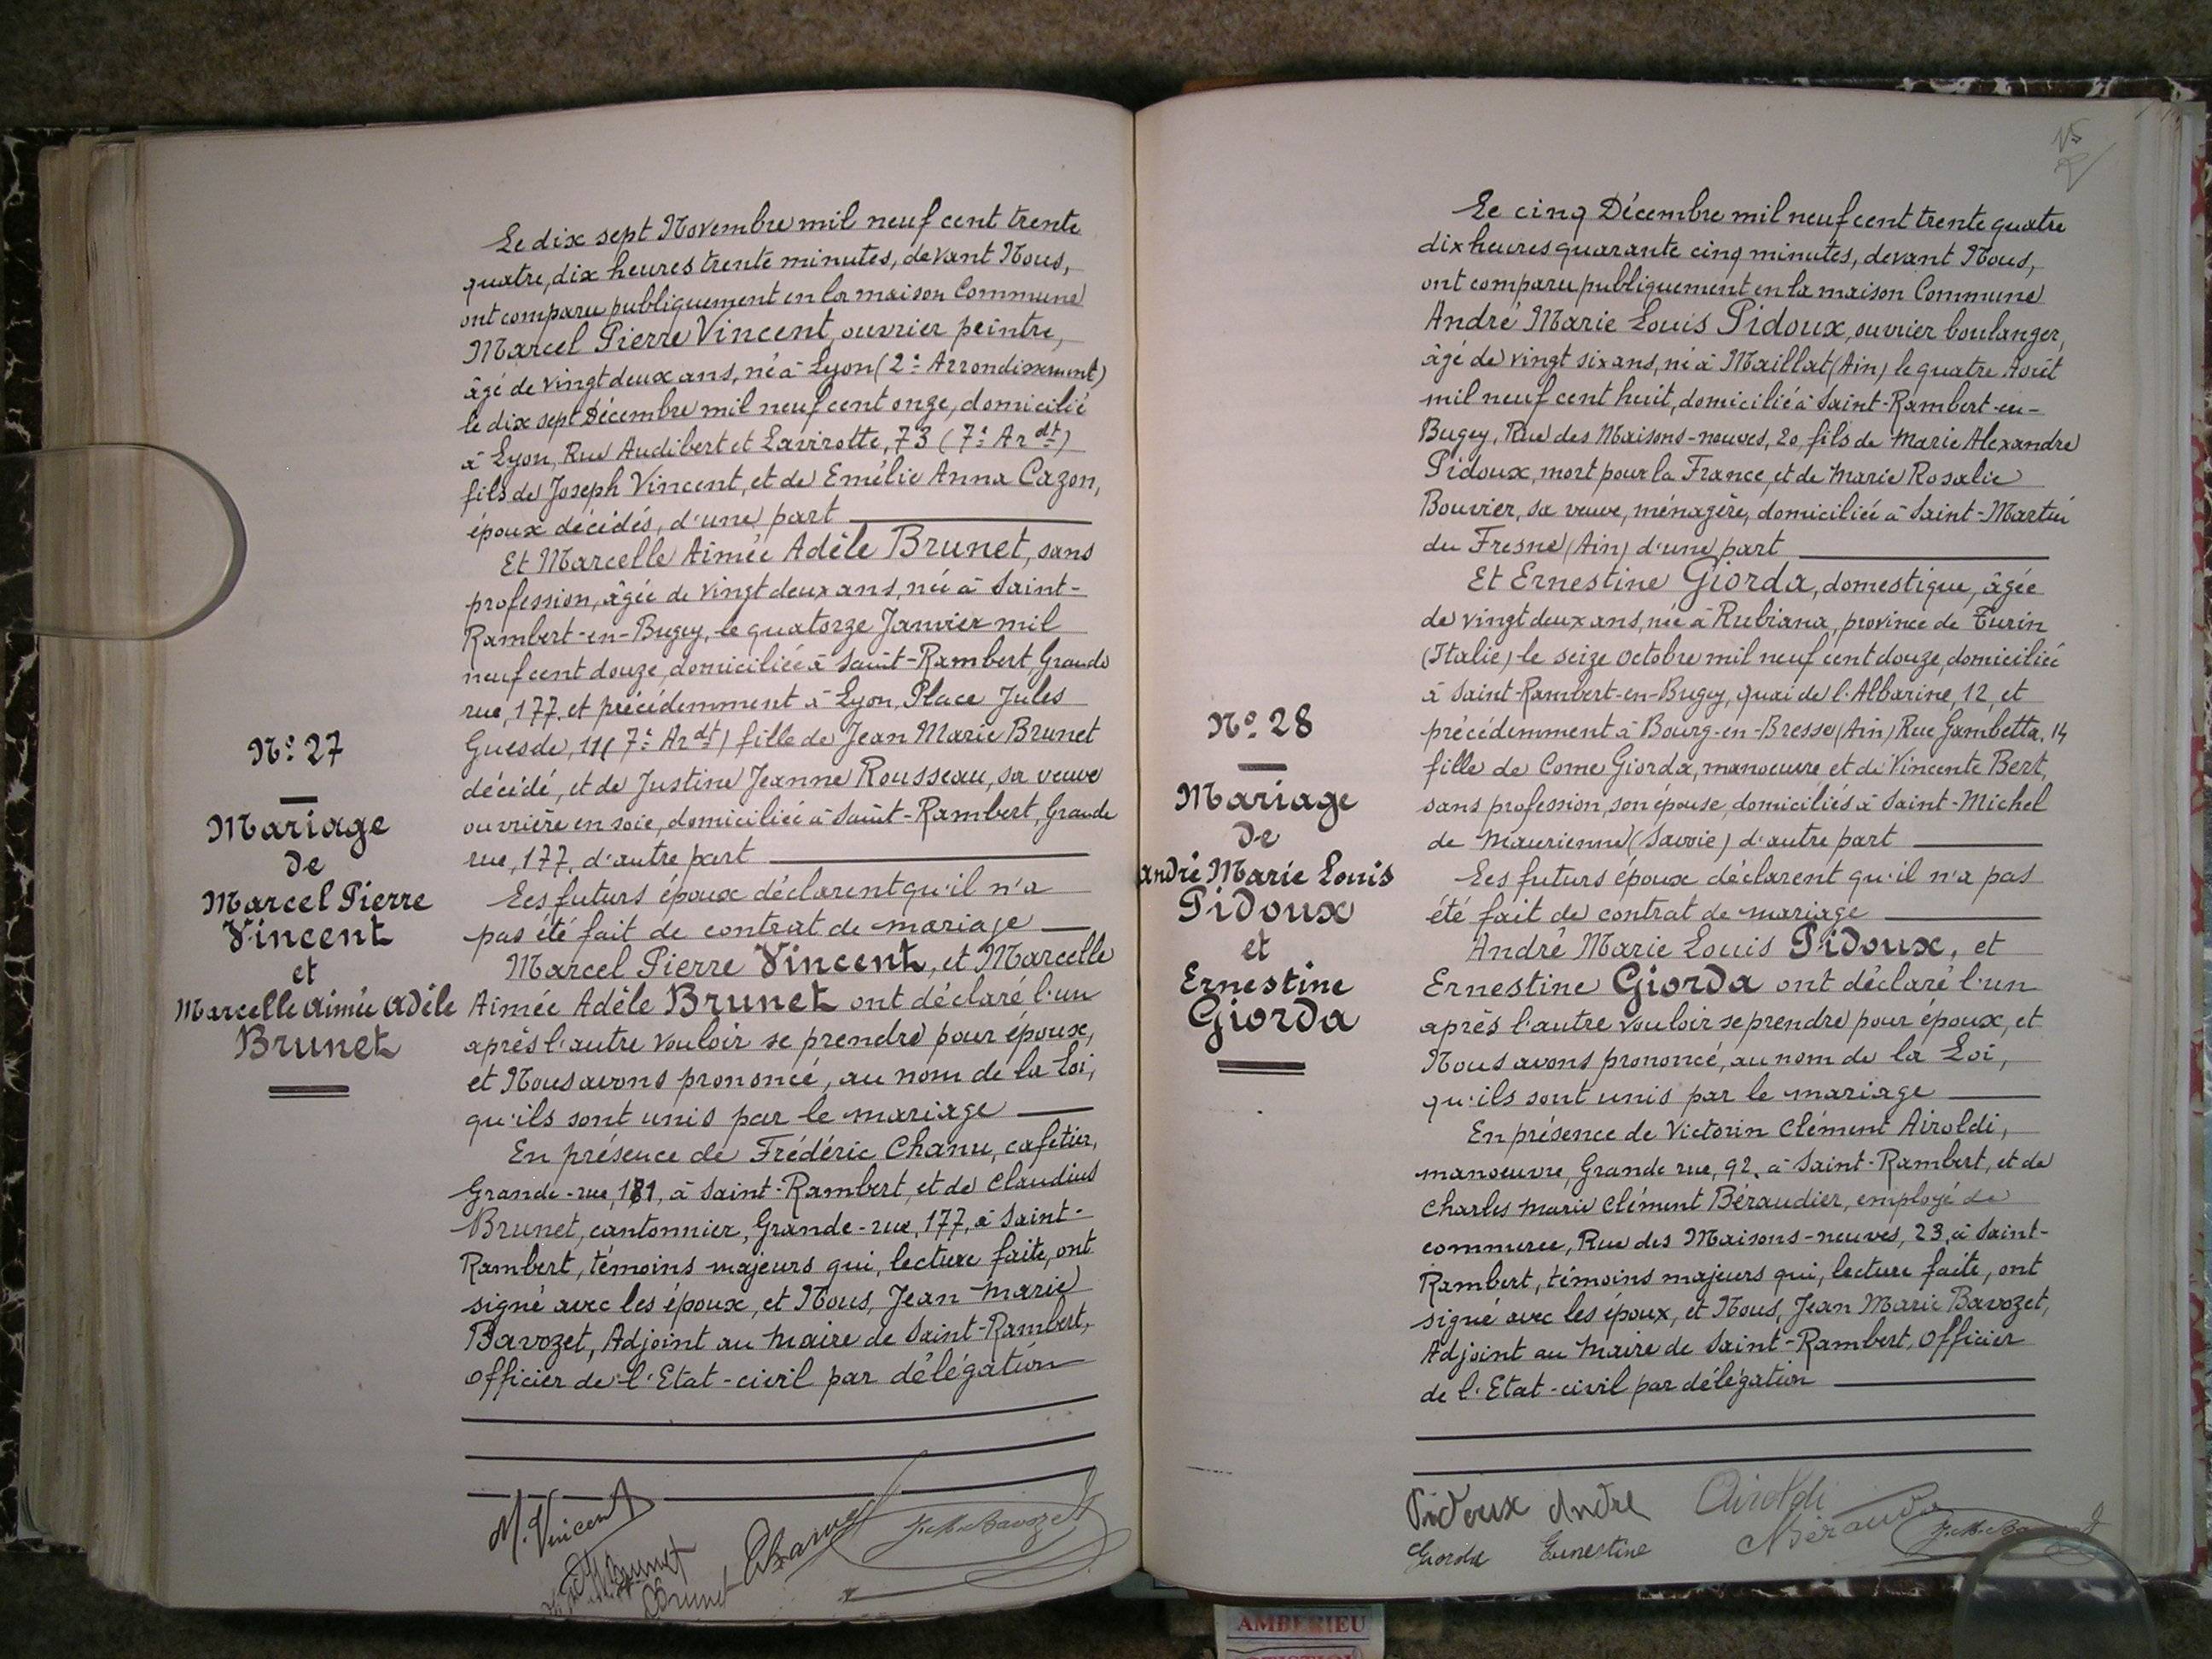 Le dix sept Novembre mil neuf cent trente
quatre, dix heures trente minutes, devant Nous,
ont comparu publiquement en la maison Commune
Marcel Pierre Vincent, ouvrier peintre,
âgé de vingt deux ans, né à Lyon (2e Arrondissement)
le dix sept Décembre mil neuf cent onze, domicilié
à Lyon, Rue Audibert et Lavirotte, 73 (7e Ardt)
fils de Joseph Vincent, et de Emélie Anna Cazon,
époux décédés, d'une part
Et Marcelle Aimée Adèle Brunet, sans
profession, âgée de vingt deux ans, née à Saint-
Rambert-en-Bugey, le quatorze Janvier mil
neuf cent douze, domiciliée à Saint-Rambert, Grande
rue, 177, et précédemment à Lyon, Place Jules
Guesde, 11 (7e Ardt) fille de Jean Marie Brunet
décédé, et de Justine Jeanne Rousseau, sa veuve
ouvrière en soie, domiciliée à Saint-Rambert, Grande
rue, 177, d'autre part
Les futurs époux déclarent qu'il n'a
pas été fait de contrat de mariage
Marcel Pierre Vincent, et Marcelle
Aimée Adèle Brunet ont déclaré l'un
après l'autre vouloir se prendre pour époux,
et Nous avons prononcé, au nom de la Loi,
qu'ils sont unis par le mariage
En présence de Frédéric Chanu, cafetier,
Grande-rue, 181, à Saint-Rambert, et de Claudius
Brunet, cantonnier, Grande-rue, 177, à Saint-
Rambert, témoins majeurs qui, lecture faite, ont
signé avec les époux, et Nous, Jean Marie
Bavozet, Adjoint au Maire de Saint-Rambert,
Officier de l'Etat-civil par délégation
N° 27
Mariage
de
Marcel Pierre
Vincent
et
Marcelle Aimée Adèle
Brunet
M. Vincent
Brunet
Brunet
Chanu
J.M. Bavozet
Le cinq Décembre mil neuf cent trente quatre
dix heures quarante cinq minutes, devant Nous,
ont comparu publiquement en la maison Commune
André Marie Louis Pidoux, ouvrier boulanger,
âgé de vingt six ans, né à Maillat (Ain) le quatre Août
mil neuf cent huit, domicilié à Saint-Rambert-en-
Bugey, Rue des Maisons-neuves, 20, fils de Marie Alexandre
Pidoux, mort pour la France, et de Marie Rosalie
Bouvier, sa veuve, ménagère, domiciliée à Saint-Martin
du Fresne (Ain) d'une part
Et Ernestine Giorda, domestique, âgée
de vingt deux ans, née à Rubiana, province de Turin
(Italie) le seize Octobre mil neuf cent douze, domiciliée
à Saint-Rambert-en-Bugey, quai de l'Albarine, 12, et
précédemment à Bourg-en-Bresse (Ain) Rue Gambetta, 14
fille de Come Giorda, manoeuvre et de Vincente Bert,
sans profession, son épouse, domiciliés à Saint-Michel
de Maurienne (Savoie) d'autre part
Les futurs époux déclarent qu'il n'a pas
été fait de contrat de mariage
André Marie Louis Pidoux, et
Ernestine Giorda ont déclaré l'un
après l'autre vouloir se prendre pour époux, et
Nous avons prononcé, au nom de la Loi,
qu'ils sont unis par le mariage
En présence de Victorin Clément Airoldi,
manoeuvre, Grande rue, 92, à Saint-Rambert, et de
Charles Marie Clément Béraudier, employé de
commerce, Rue des Maisons-neuves, 23, à Saint-
Rambert, témoins majeurs qui, lecture faite, ont
signé avec les époux, et Nous, Jean Marie Bavozet,
Adjoint au Maire de Saint-Rambert, Officier
de l'Etat-civil par délégation
N° 28
Mariage
de
André Marie Louis
Pidoux
et
Ernestine
Giorda
Pidoux André Airoldi
Giorda Ernestine
AMBERIEU